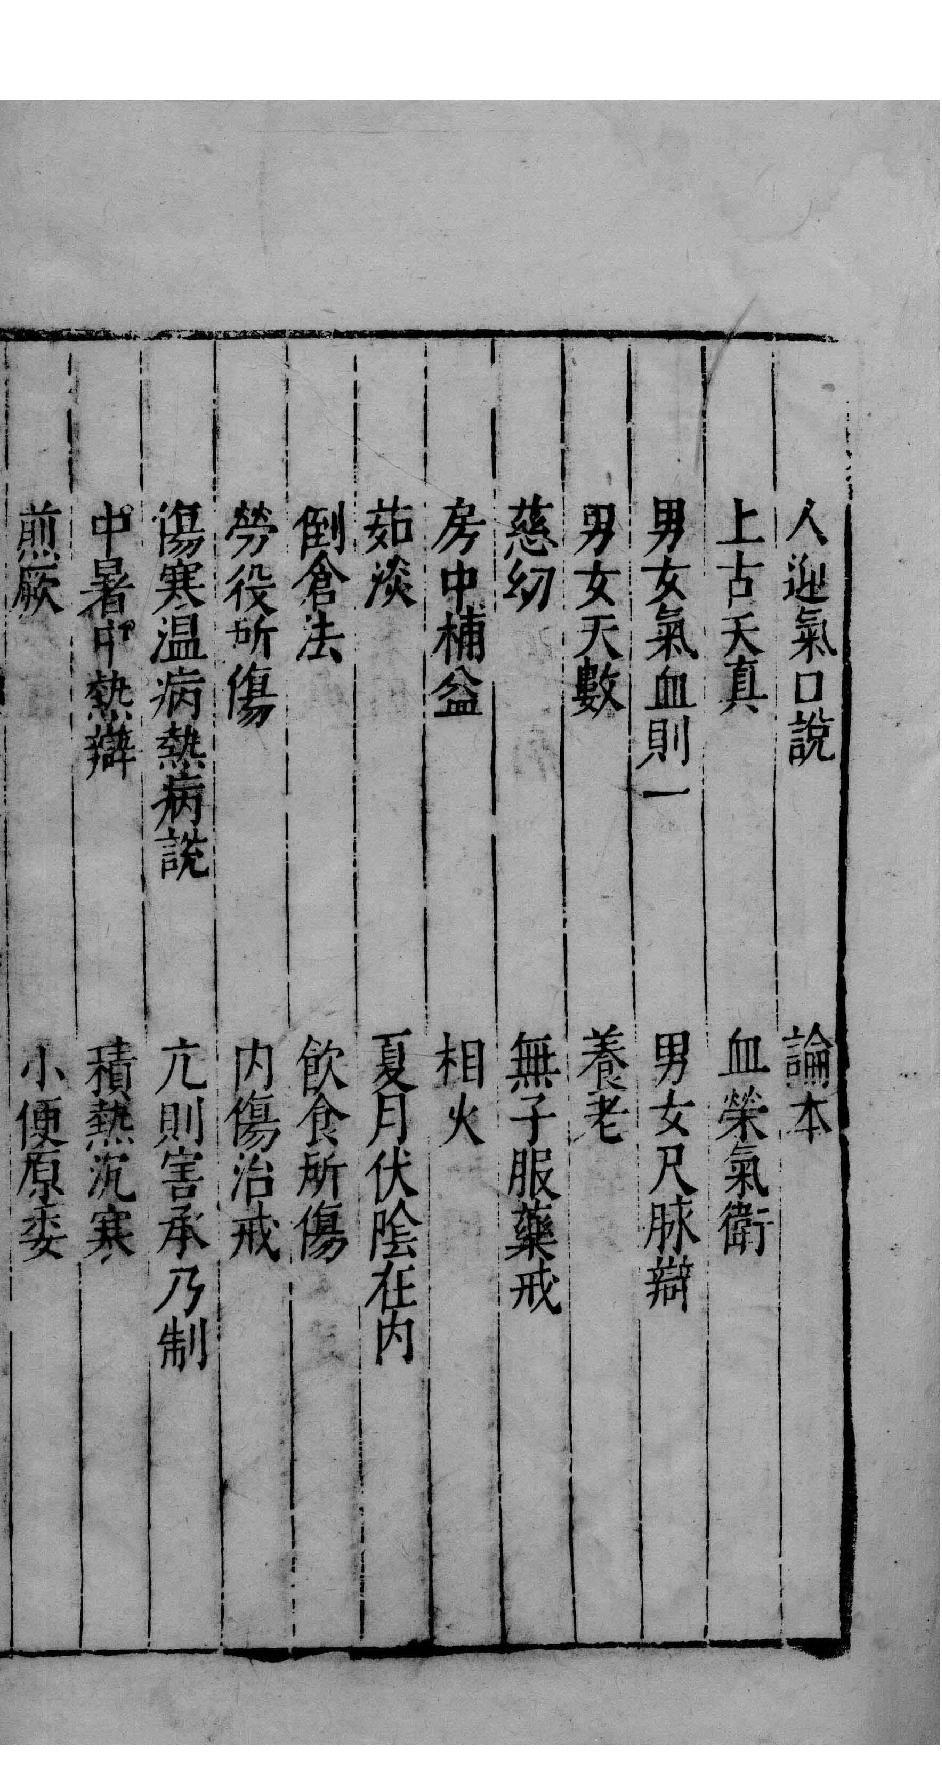 人迎氣口說　論本
上古天真　血榮氣衛
男女氣血則一　男女尺脉辯
男女天數　養老
慈幼　無子服藥戒
房中補益　相火
茹淡　夏月伏陰在内
倒倉法　飲食所傷
勞役所傷　内傷治戒
傷寒温病熱病說　亢則害承乃制
中暑中熱辯　積熱沉寒
煎厥　小便原委